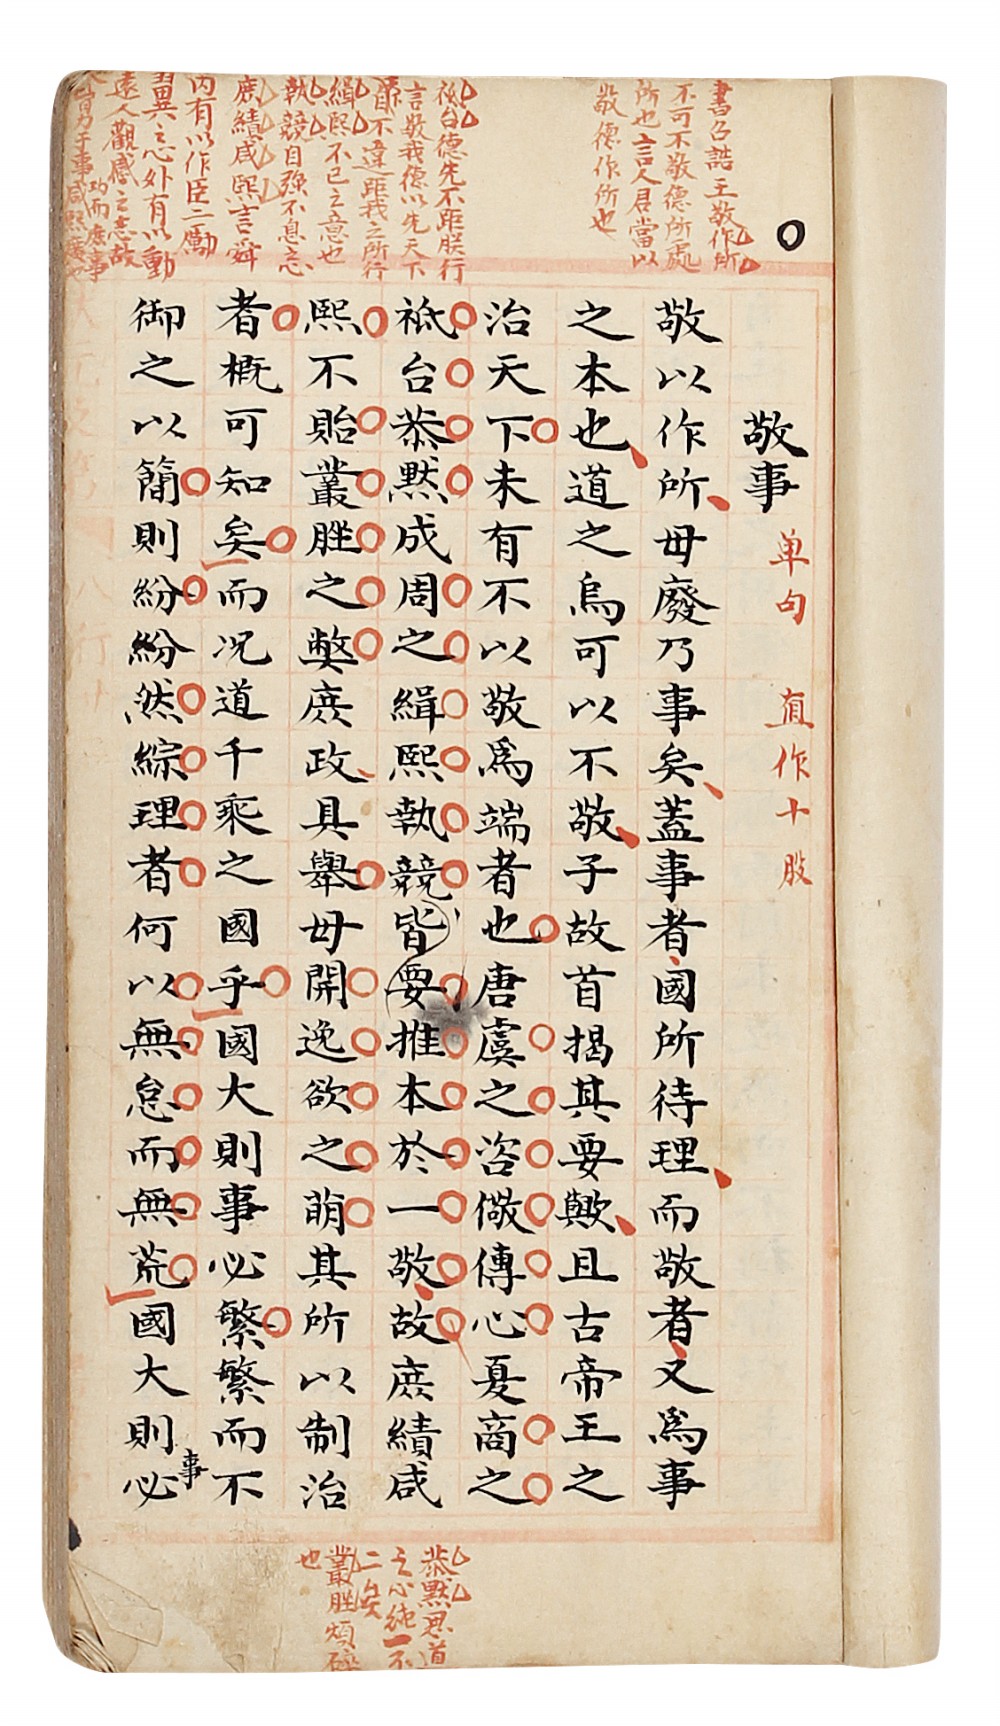 書召誥王敬作所
不可不敬德所處
所也言人君當以
敬德作所也
祗台德先不距朕行
言敬我德以先天下
不違距我之所行
緝熙不已之意也
執競自强不息之心
庶績咸熙言舜
内有以作臣工勵
翼之心外有以動
遠人觀感之志故
敬事
单句 直作十股
敬以作所毋廢乃事矣蓋事者國所待理而敬者又爲事
之本也道之烏可以不敬子故首揭其要歟且古帝王之
治天下未有不以敬爲端者也唐虞之咨儆傳心夏商之
祗台恭黙成周之緝熙執競皆要推本於一敬故庶績咸
熙不貽叢脞之弊庶政具舉毋開逸欲之萌其所以制治
者概可知矣而况道千乘之國乎國大則事必繁繁而不
御之以簡則紛紛然綜理者何以無怠而無荒國大則必
事
恭黙思道
之心純一不
二矣
叢脞煩碎
也